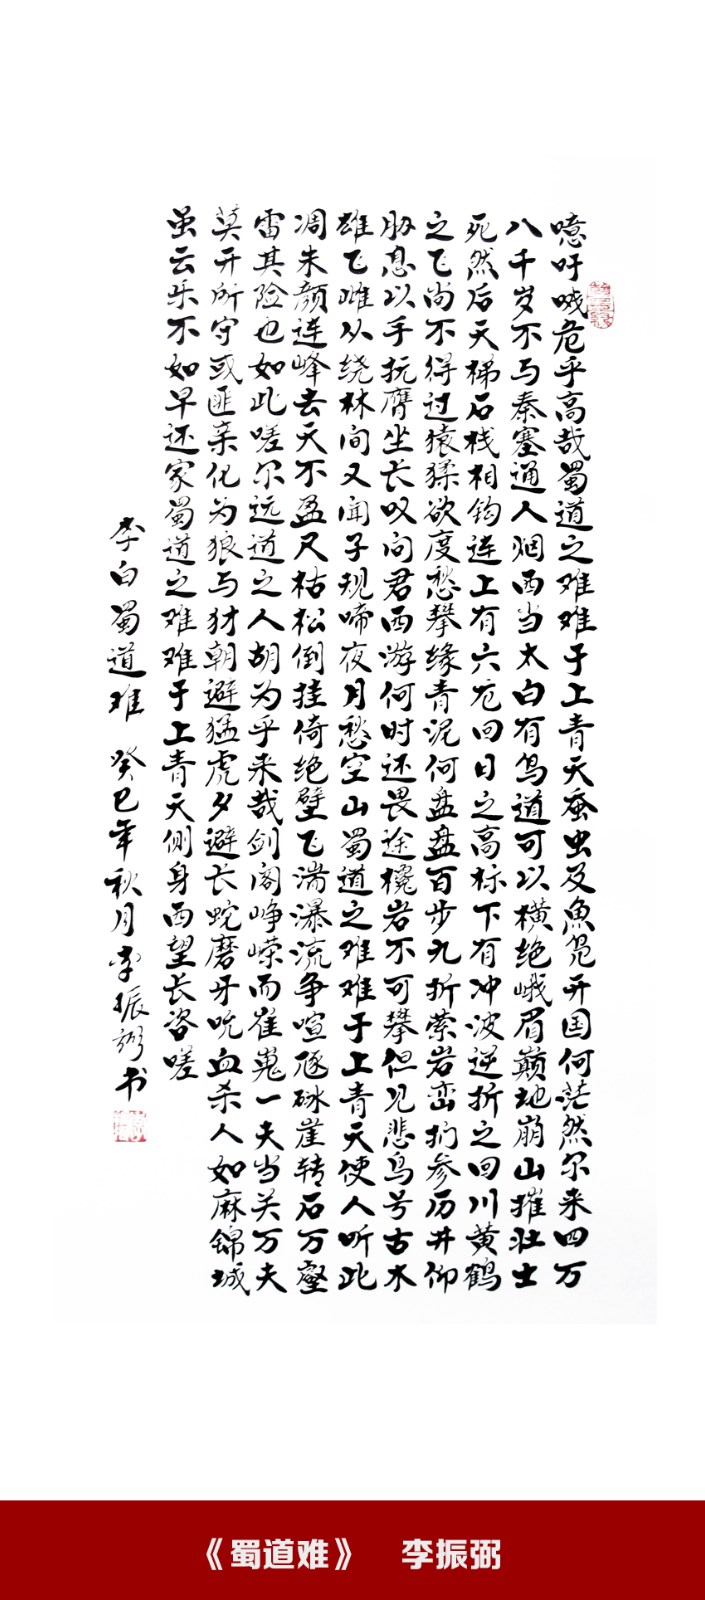 噫吁嘁危乎高哉蜀道之难难于上青天蚕虫及魚凫开国何茫然尔来四万
八千岁不与秦塞通人烟西当太白有鸟道可以横绝峨眉巅地崩山摧壮士
死然后天梯石栈相钩连上有六龙回日之高标下有冲波逆折之回川黄鹤
之飞尚不得过猿猱欲度愁攀缘青泥何盘盘百步九折萦岩峦扪参历井仰
胁息以手抚膺坐长叹问君西游何时还畏途巉岩不可攀但见悲鸟号古木
雄飞雌从绕林间又闻子规啼夜月愁空山蜀道之难难于上青天使人听此
凋朱颜连峰去天不盈尺枯松倒挂倚绝壁飞湍瀑流争喧豗砯崖转石万壑
雷其险也如此嗟尔远道之人胡为乎来哉剑阁峥嵘而崔嵬一夫当关万夫
莫开所守或匪亲化为狼与豺朝避猛虎夕避长蛇磨牙吮血杀人如麻锦城
虽云乐不如早还家蜀道之难难于上青天侧身西望长咨嗟
李白蜀道难 癸巳年秋月李振弼书
《蜀道难》 李振弼